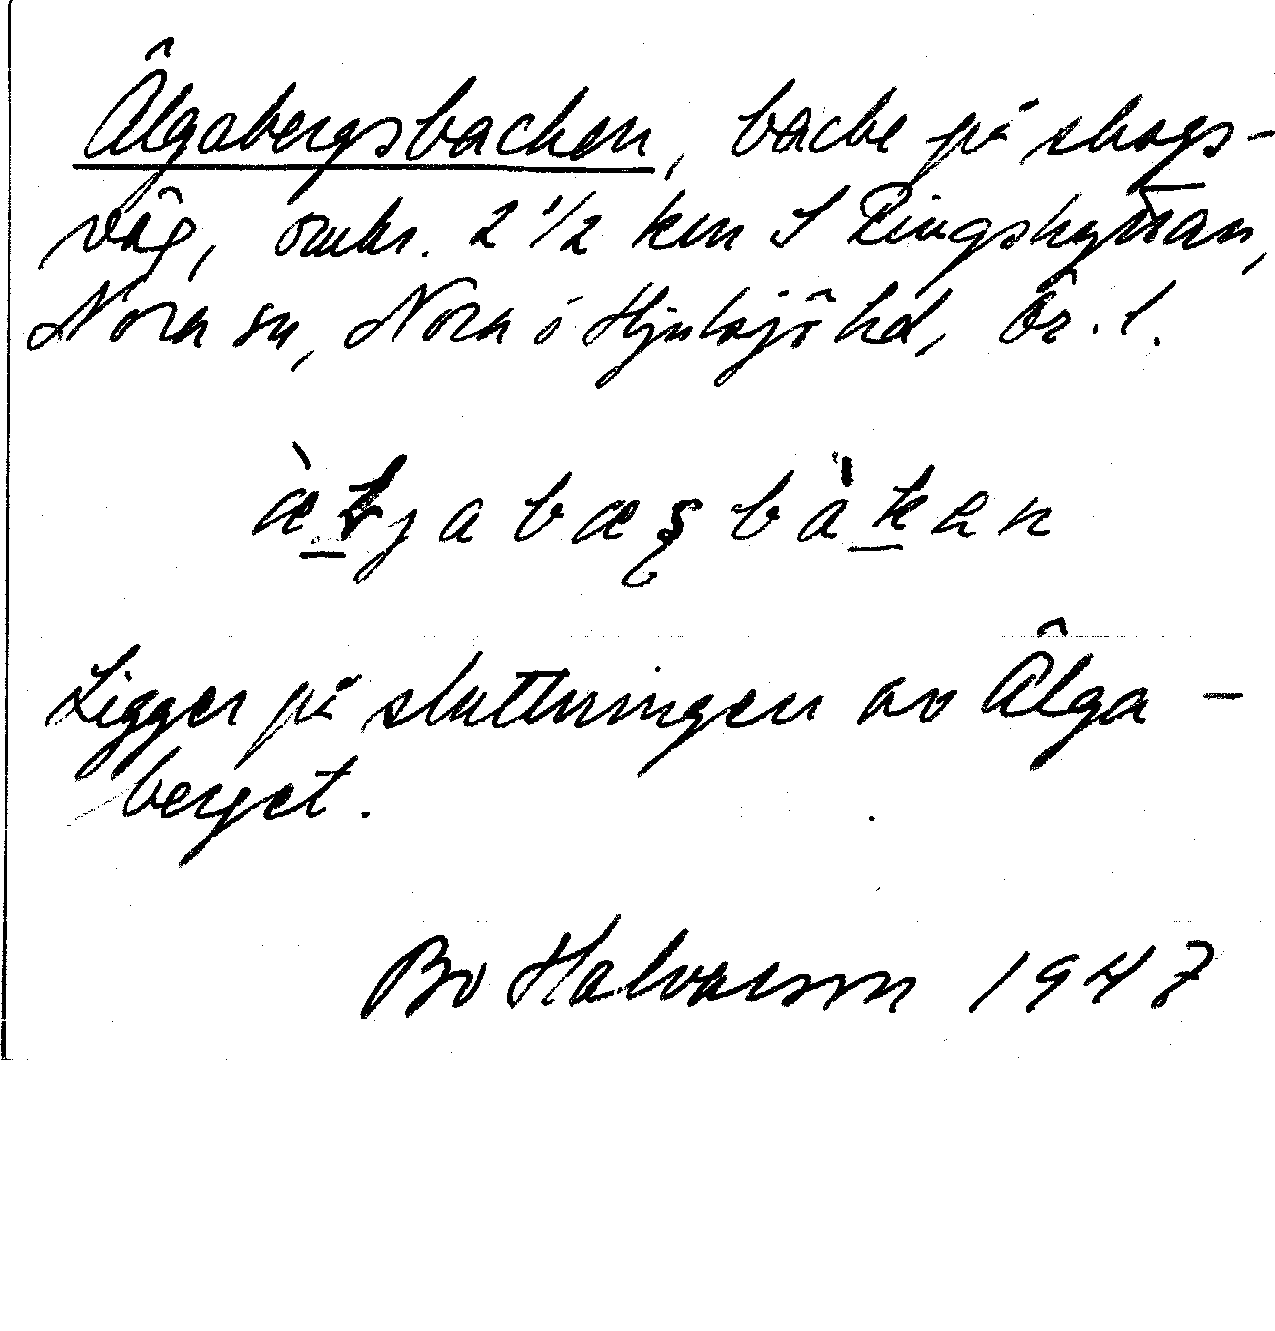 Älgabergsbacken, backe på skogs-
väg, omkr. 2 1/2 km S Ringshyttan,
Nora sn, Nora o Hjulsjö hd, Ör. l.
Ligger på sluttningen av Älga-
berget.
Bo Halvarson 1947